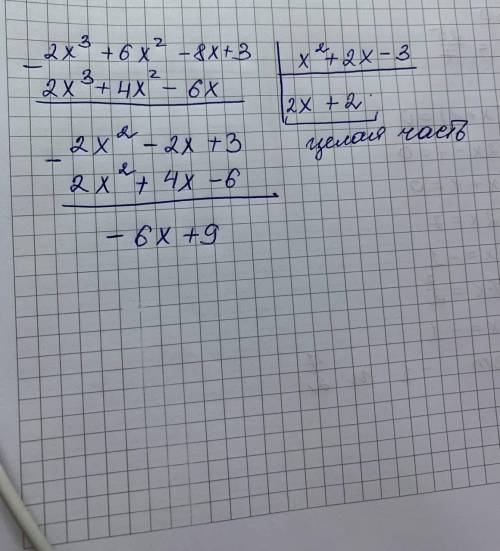 - 2x³ + 6x² - 8x + 3 | x² + 2x - 3
2x³ + 4x² - 6x | 2x + 2
целая часть
- 2x² - 2x + 3
2x² + 4x - 6
- 6x + 9